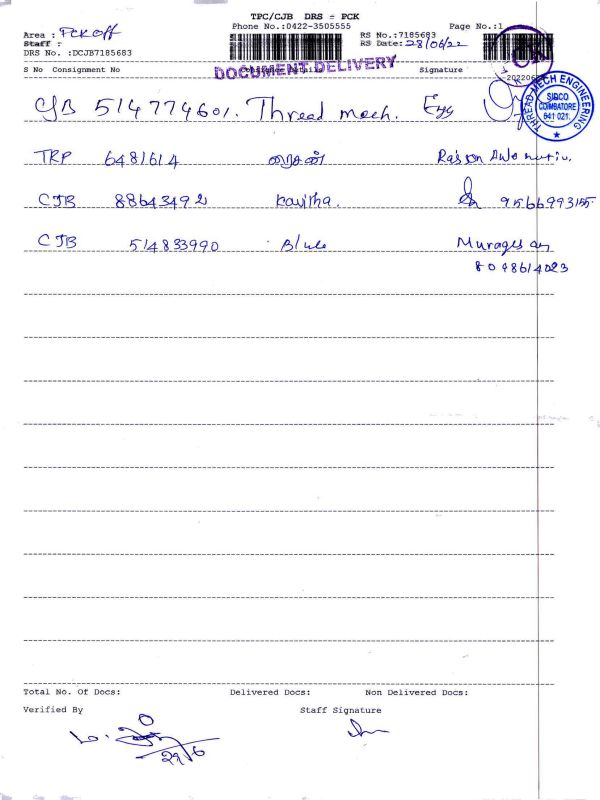 TPC/CJB DRS = PCK
Phone No.:0422-3505555 Page No.:1
Area : PCK off RS No.:7185683
Staff : RS Date: 28/06/22
DRS No. :DCJB7185683
DOCUMENT DELIVERY
S No Consignment No Signature
THREAD-MECH ENGINEERING
SIDCO
COIMBATORE
641 021.
CJB 514774601. Thread mech. Egg
TRP 6481614
CJB 88643492 Kavitha. 9566993155
CJB 514833990 Blue Murugesan
8098614023
Total No. Of Docs: Delivered Docs: Non Delivered Docs:
Verified By Staff Signature
29/6